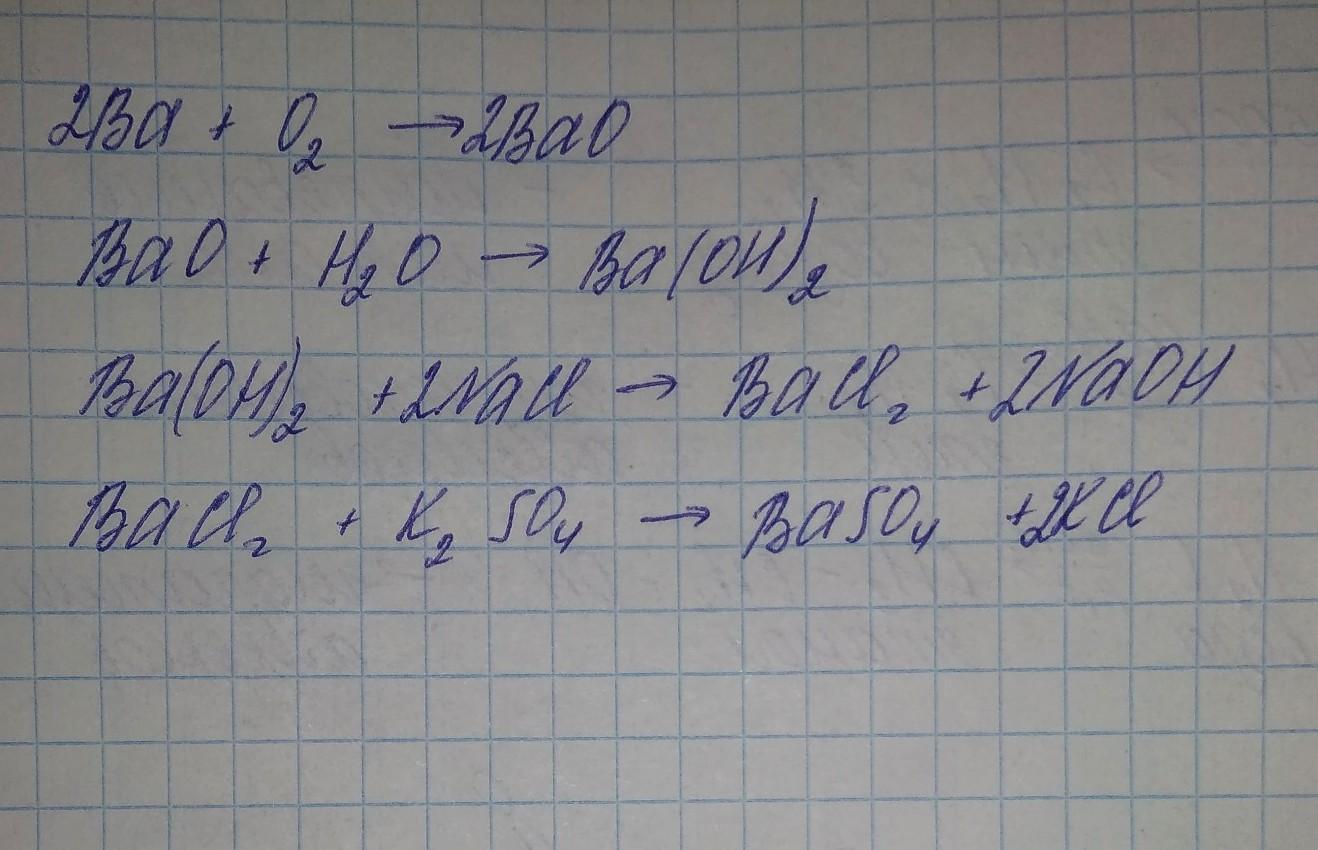 2Ba + O₂ → 2BaO
BaO + H₂O → Ba(OH)₂
Ba(OH)₂ + 2NaCl → BaCl₂ + 2NaOH
BaCl₂ + K₂SO₄ → BaSO₄ + 2KCl